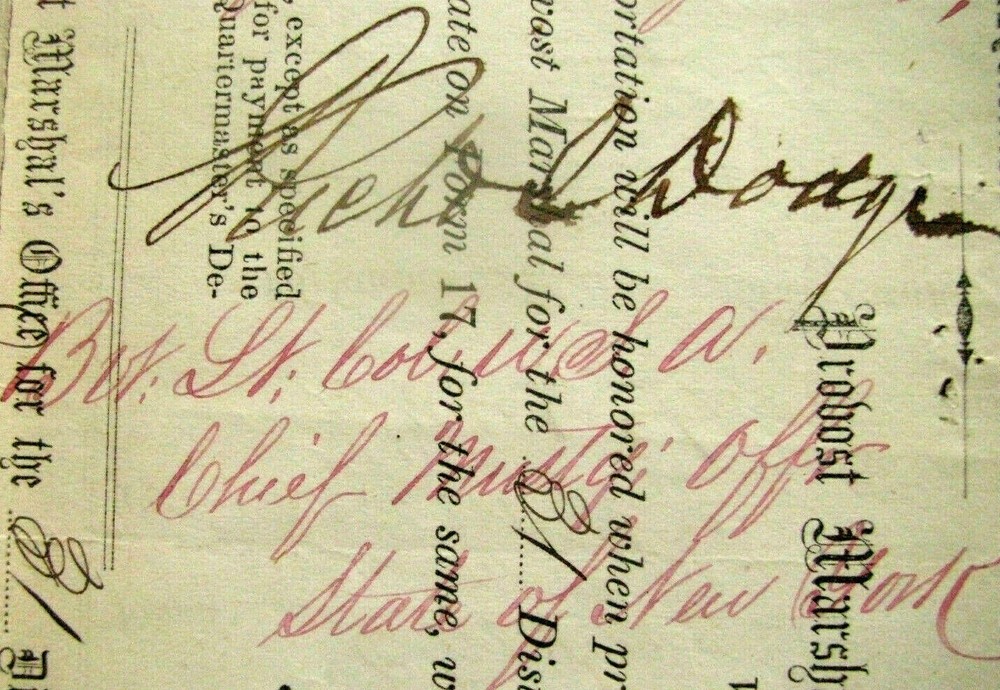 Rich I. Dodge
Bvt. Lt. Col. U.S.A.
Chief Mustg. Offr.
State of New York
Provost Marsh
ortation will be honored when pr
vost Marshal for the 21 Dist
ate on Form 17, for the same, w
, except as specified
for payment to the
Quartermaster's De-
t Marshal's Office for the 21 Di